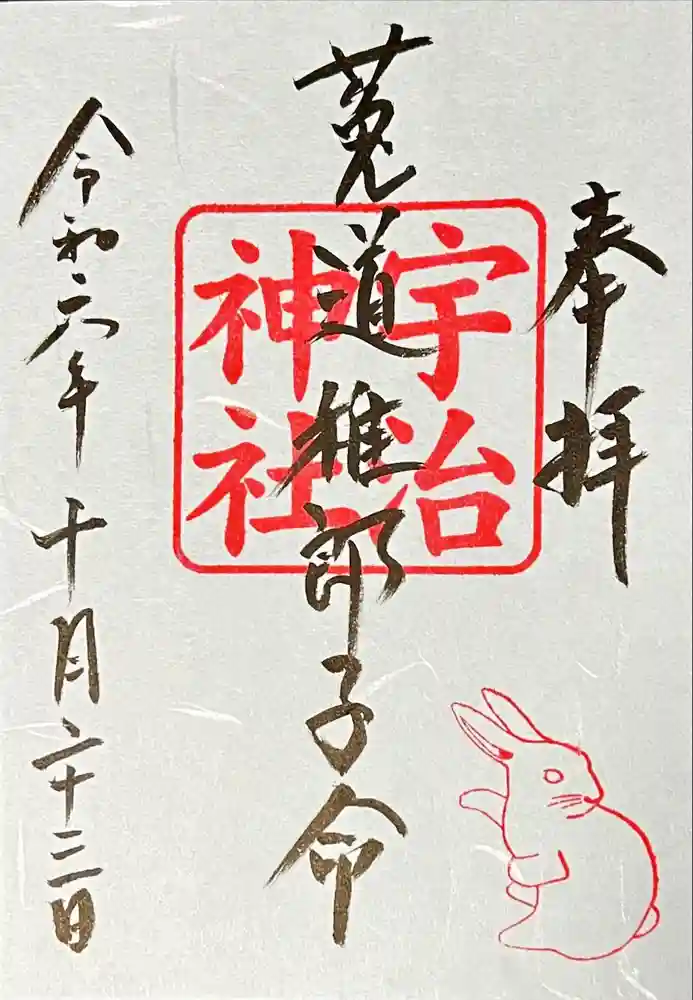 奉拝
菟道稚郎子命
宇治
神社
令和六年十月二十三日